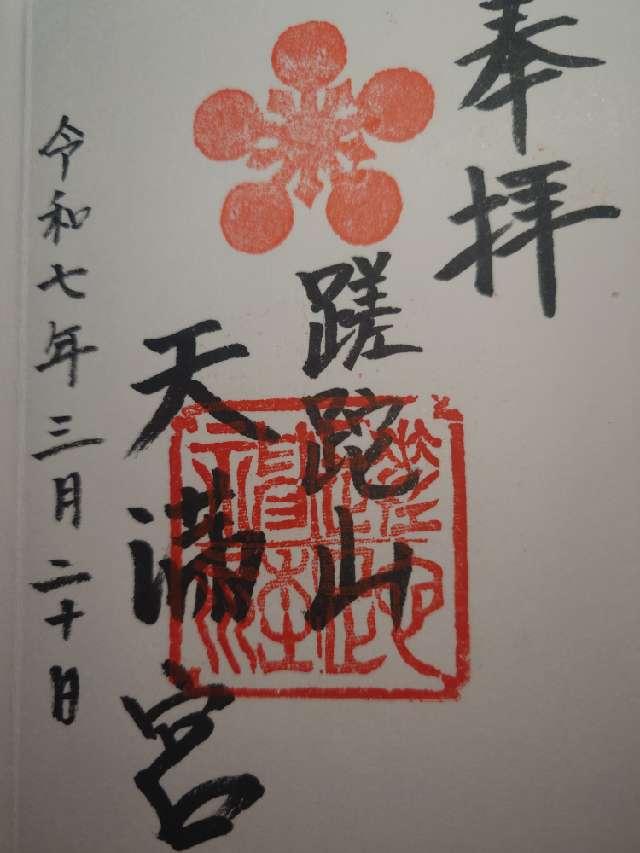 奉拝
蹉跎山
天満宮
令和七年三月二十日